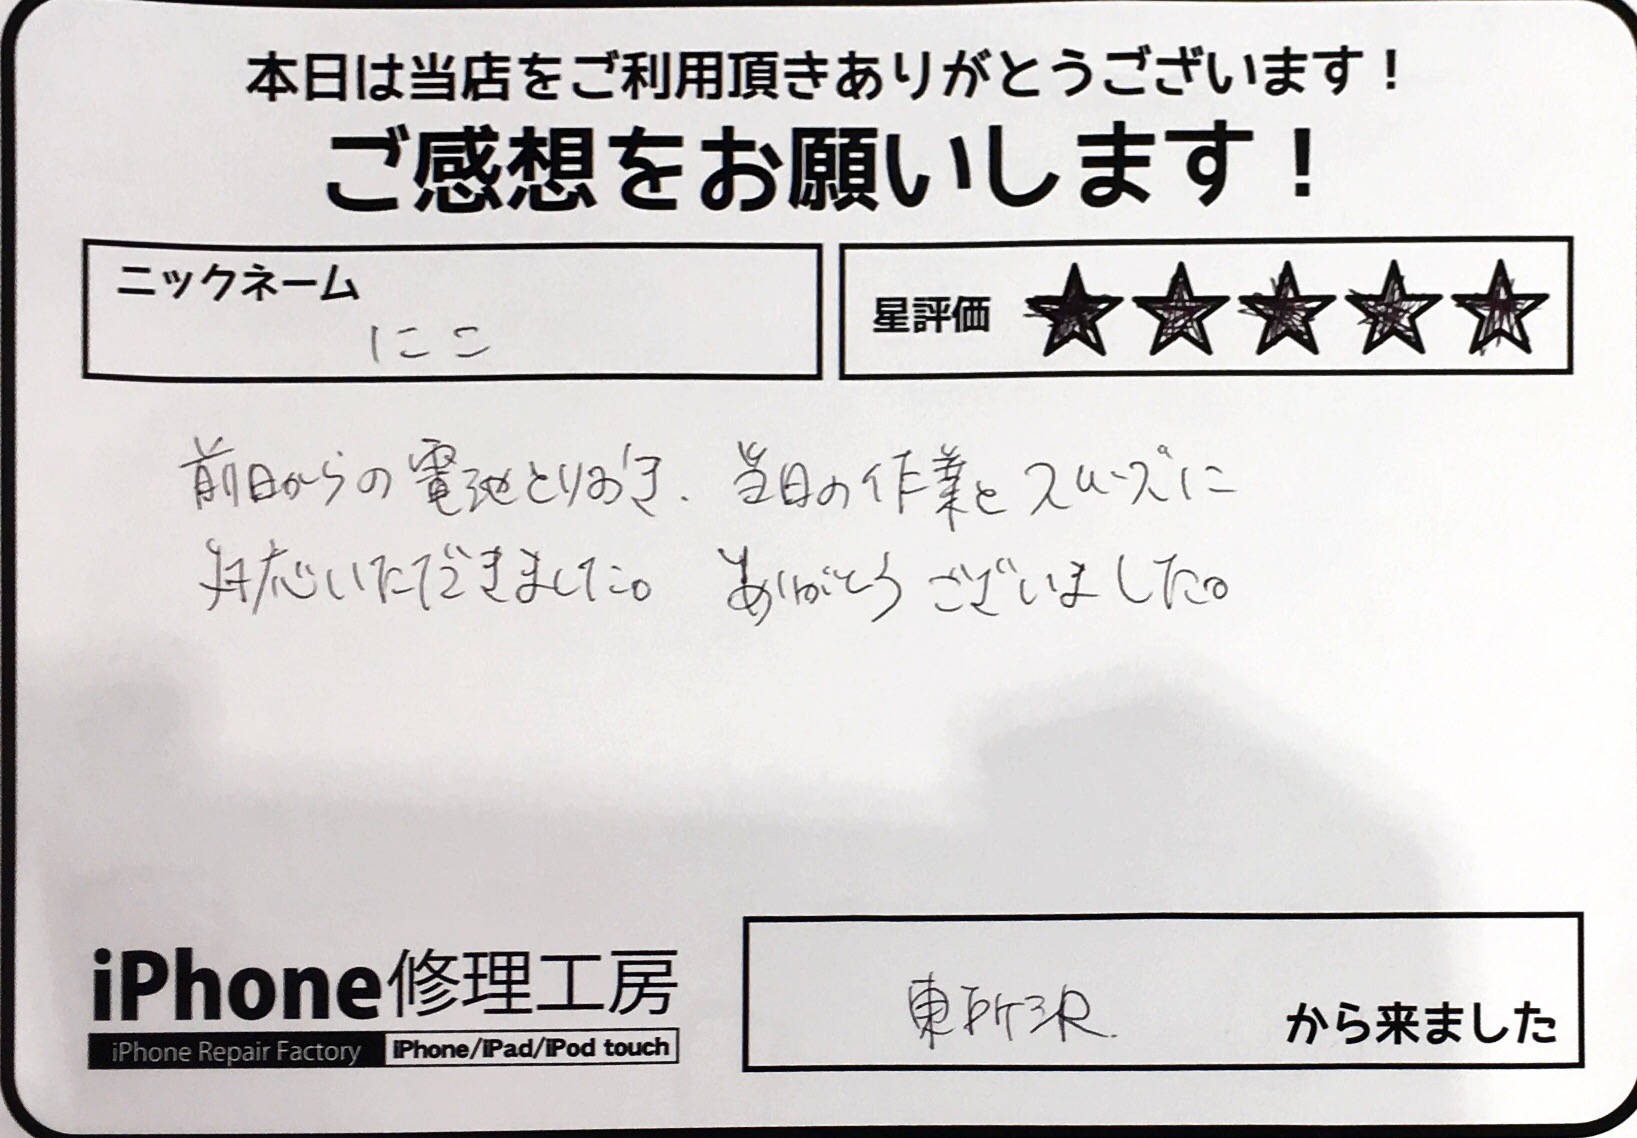 本日は当店をご利用頂きありがとうございます！
ご感想をお願いします！
ニックネーム
にこ
星評価 ★★★★★
前日からの電池とりおき、当日の作業とスムーズに
対応いただきました。 ありがとうございました。
iPhone修理工房
iPhone Repair Factory iPhone/iPad/iPod touch
東所沢 から来ました